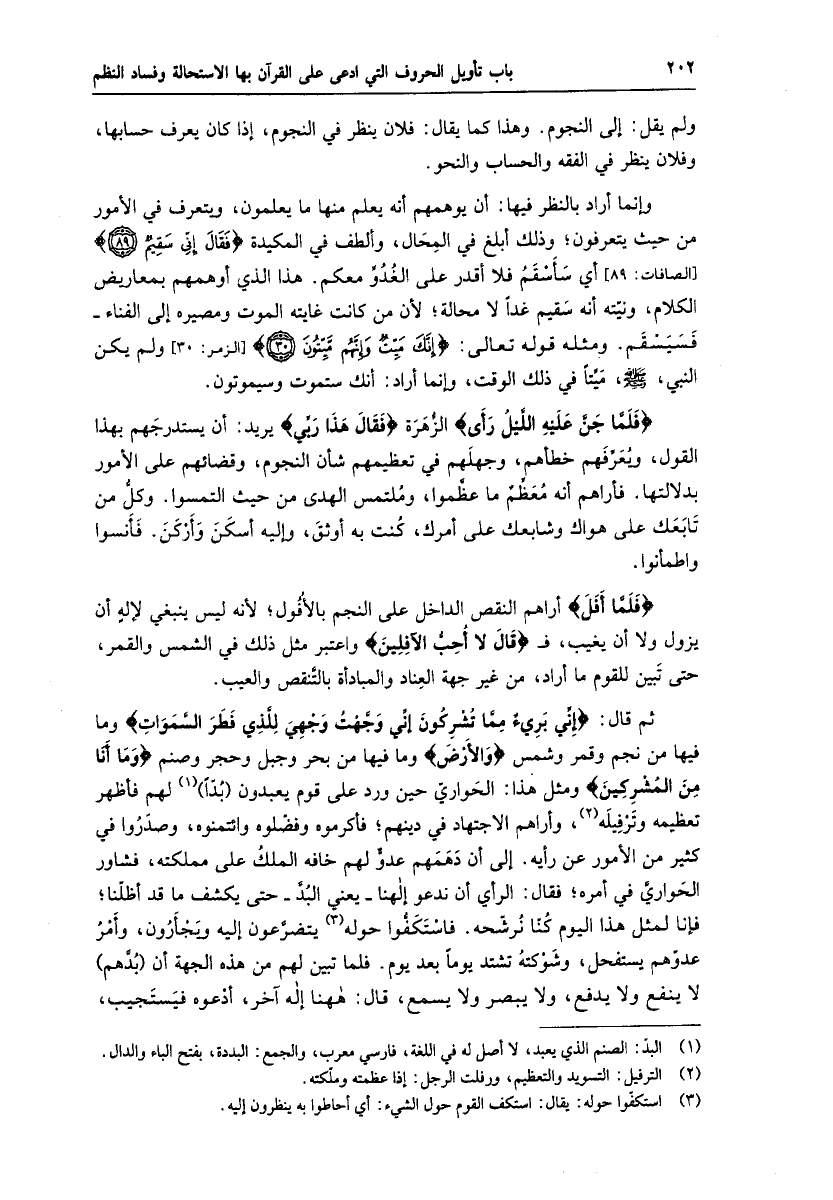 ٢٠٢ باب تأويل الحروف التي ادعى على القرآن بها الاستحالة وفساد النظم
ولم يقل: إلى النجوم. وهذا كما يقال: فلان ينظر في النجوم، إذا كان يعرف حسابها،
وفلان ينظر في الفقه والحساب والنحو.
وإنما أراد بالنظر فيها: أن يوهمهم أنه يعلم منها ما يعلمون، ويتعرف في الأمور
من حيث يتعرفون؛ وذلك أبلغ في المِحَال، وألطف في المكيدة ﴿فَقَالَ إِنِّي سَقِيمٌ ٨٩﴾
[الصافات: ٨٩] أي سَأَسْقَمُ فلا أقدر على الغُدُوِّ معكم. هذا الذي أوهمهم بمعاريض
الكلام، ونيّته أنه سَقيم غداً لا محالة؛ لأن من كانت غايته الموت ومصيره إلى الفناء ـ
فَسَيَسْقَم. ومثله قوله تعالى: ﴿إِنَّكَ مَيِّتٌ وَإِنَّهُم مَّيِّتُونَ ٣٠﴾ [الزمر: ٣٠] ولم يكن
النبي، ﷺ، مَيِّتاً في ذلك الوقت، وإنما أراد: أنك ستموت وسيموتون.
﴿فَلَمَّا جَنَّ عَلَيْهِ اللَّيْلُ رَأَى﴾ الزُّهَرَة ﴿فَقَالَ هَذَا رَبِّي﴾ يريد: أن يستدرجَهم بهذا
القول، ويُعَرِّفَهم خطأهم، وجهلَهم في تعظيمهم شأن النجوم، وقضائهم على الأمور
بدلالتها. فأراهم أنه مُعَظِّمٌ ما عظَّموا، ومُلتمس الهدى من حيث التمسوا. وكلُّ من
تَابَعَك على هواك وشابعك على أمرك، كُنت به أوثقَ، وإليه أسكنَ وَأَرْكَنَ. فَأَنسوا
واطمأنوا.
﴿فَلَمَّا أَفَلَ﴾ أراهم النقص الداخل على النجم بالأُفُول؛ لأنه ليس ينبغي لإلهٍ أن
يزول ولا أن يغيب، فـ ﴿قَالَ لا أُحِبُّ الآفِلِينَ﴾ واعتبر مثل ذلك في الشمس والقمر،
حتى تَبين للقوم ما أراد، من غير جهة العِناد والمبادأة بالتَّنقص والعيب.
ثم قال: ﴿إِنِّي بَرِيءٌ مِمَّا تُشْرِكُون إنِّي وَجَّهْتُ وَجْهِيَ لِلَّذِي فَطَرَ السَّمَوَاتِ﴾ وما
فيها من نجم وقمر وشمس ﴿وَالأَرْضَ﴾ وما فيها من بحر وجبل وحجر وصنم ﴿وَمَا أَنَا
مِنَ المُشْرِكِينَ﴾ ومثل هذا: الحَواريّ حين ورد على قوم يعبدون (بُدّاً)(١) لهم فأظهر
تعظيمه وتَرْفِيلَه(٢)، وأراهم الاجتهاد في دينهم؛ فأكرموه وفضّلوه وائتمنوه، وصدَرُوا في
كثير من الأمور عن رأيه. إلى أن دَهَمَهم عدوٌّ لهم خافه الملكُ على مملكته، فشاور
الحَواريَّ في أمره؛ فقال: الرأي أن ندعو إلٰهنا ـ يعني البُدَّ ـ حتى يكشف ما قد أظلّنا؛
فإنا لمثل هذا اليوم كُنّا نُرشّحه. فاسْتَكَفُّوا حوله(٣) يتضرَّعون إليه ويَجْأَرُون، وأَمْرُ
عدوّهم يستفحل، وشَوْكتهُ تشتد يوماً بعد يوم. فلما تبين لهم من هذه الجهة أن (بُدَّهم)
لا ينفع ولا يدفع، ولا يبصر ولا يسمع، قال: هٰهنا إلٰه آخر، أدْعوه فيَستَجيب،
(١) البدّ: الصنم الذي يعبد، لا أصل له في اللغة، فارسي معرب، والجمع: البددة، بفتح الباء والدال.
(٢) الترفيل: التسويد والتعظيم، ورفلت الرجل: إذا عظمته وملّكته.
(٣) استكفّوا حوله: يقال: استكف القوم حول الشيء: أي أحاطوا به ينظرون إليه.